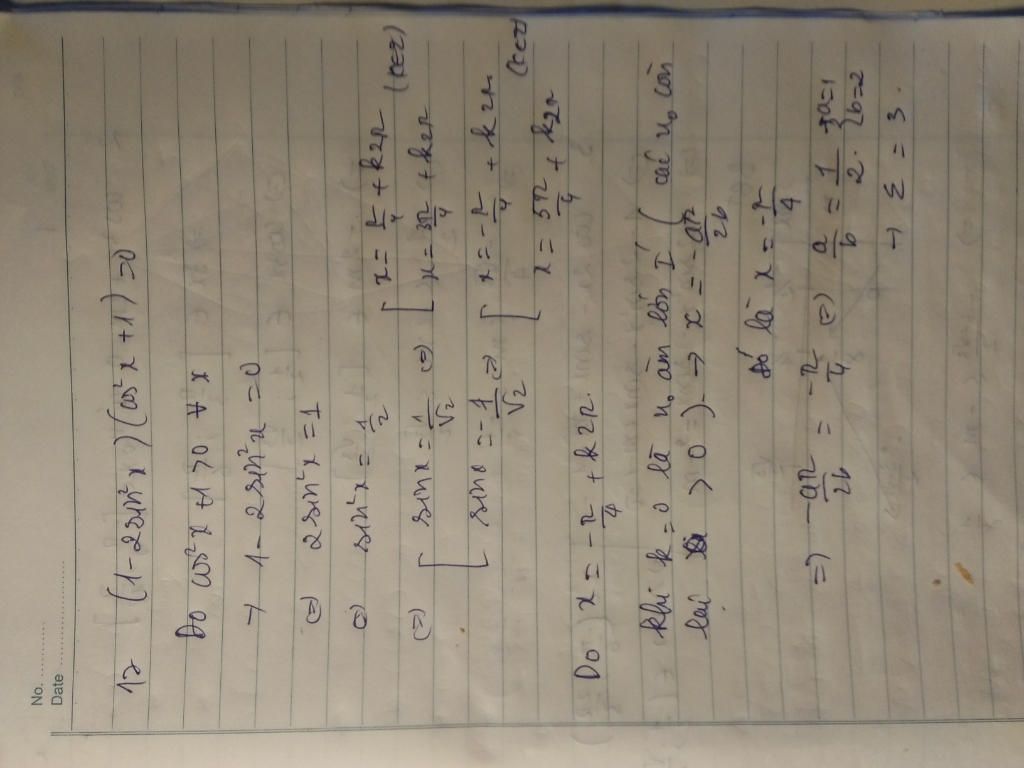 No. ...............
Date .......................
12 (1-2sin²x)(cos²x+1)=0
Do cos²x+1>0 ∀x
→ 1-2sin²x=0
⇔ 2sin²x=1
⇔ sin²x=1/2
⇔ [ sinx=1/√2 ⇔ [ x=π/4+k2π (k∈Z)
x=3π/4+k2π
[ sinx=-1/√2 ⇔ [ x=-π/4+k2π
x=5π/4+k2π (k∈Z)
Do x=-π/4+k2π
khi k=0 là n₀ âm lớn I (các n₀ còn
lại >0) → x=-aπ/2b
Đó là x=-π/4
⇒ -aπ/2b=-π/4 ⇔ a/b=1/2. → { a=1 b=2
→ Σ=3.